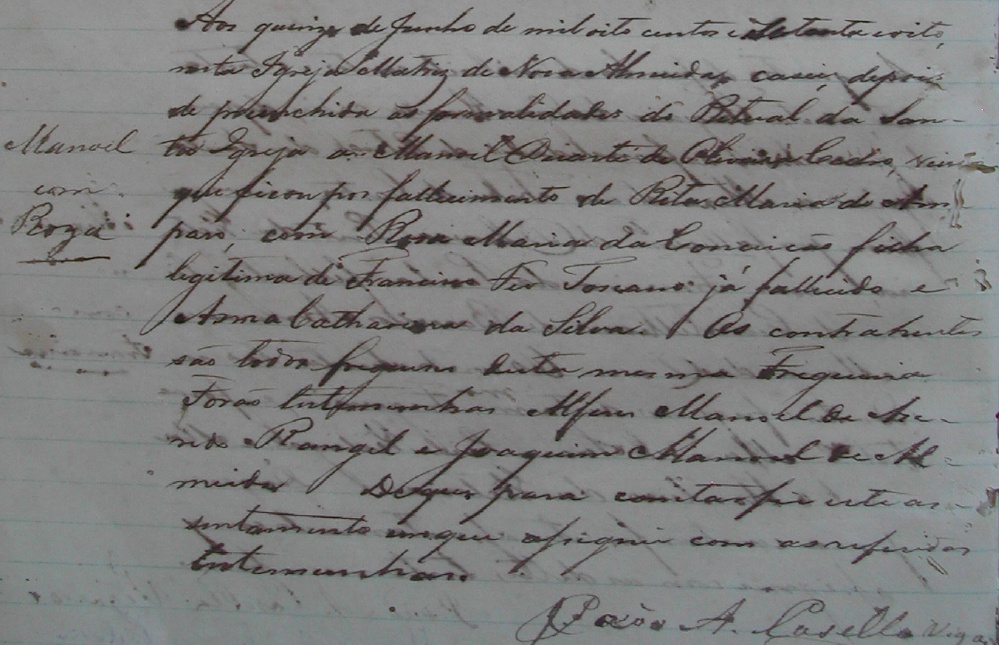 Aos quinze de Junho de mil oito centos e setenta e oito,
nesta Igreja Matriz de Nova Almeida, casei, depois
de preenchida as formalidades do Ritual da San-
Manoel
com
Roza
ta Igreja a Manoel Duarte de Oliveira Cedro, viuvo
que ficou por fallecimento de Rita Maria do Am-
paro, com Rosa Maria da Conceicão filha
legitima de Francisco Toscano já fallecido e
Anna Catharina da Silva. Os contrahentes
são todos fregueses desta mesma Freguesia
Forão testemunhas Alferes Manoel de
Rangel e Joaquim Manoel de Al-
meida De que para constar fiz este as-
sentamento em que assignei com as referidas
testemunhas
A. Casella Viga